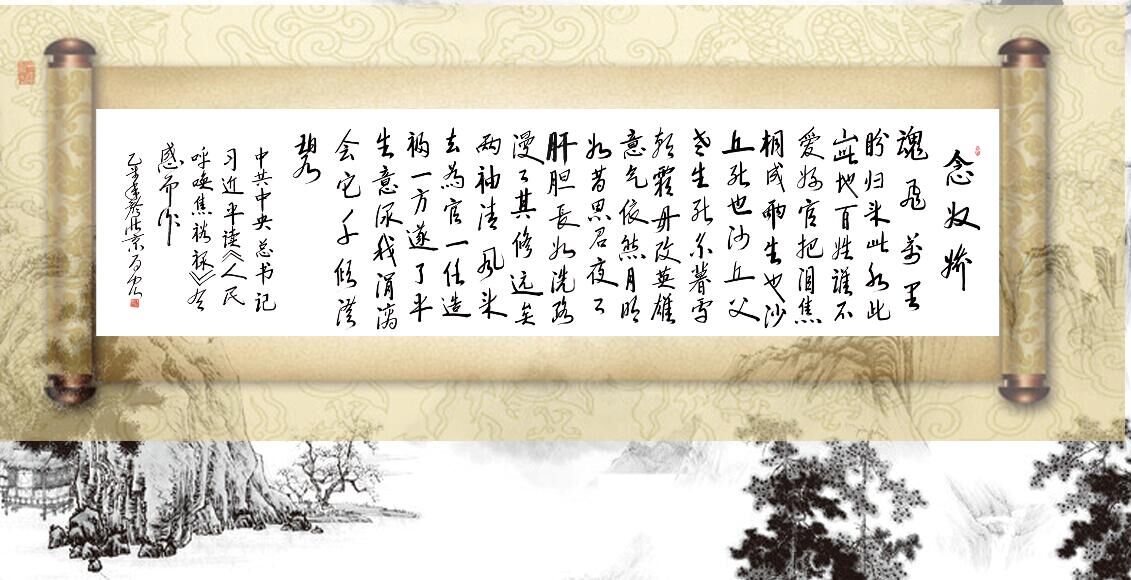 念奴娇
魂飛萬里
盼归来此水此
山此地百姓谁不
愛好官把泪焦
桐成雨生也沙
丘死也沙丘父
老生死系暮雪
朝霜毋改英雄
意气依然月明
如昔思君夜々
肝胆长如洗路
漫々其修远矣
两袖清风来
去为官一任造
福一方遂了平
生意绿我涓滴
会它千顷澄
碧
中共中央总书记
习近平读《人民
呼唤焦裕禄》有
感而作
乙未年 北京